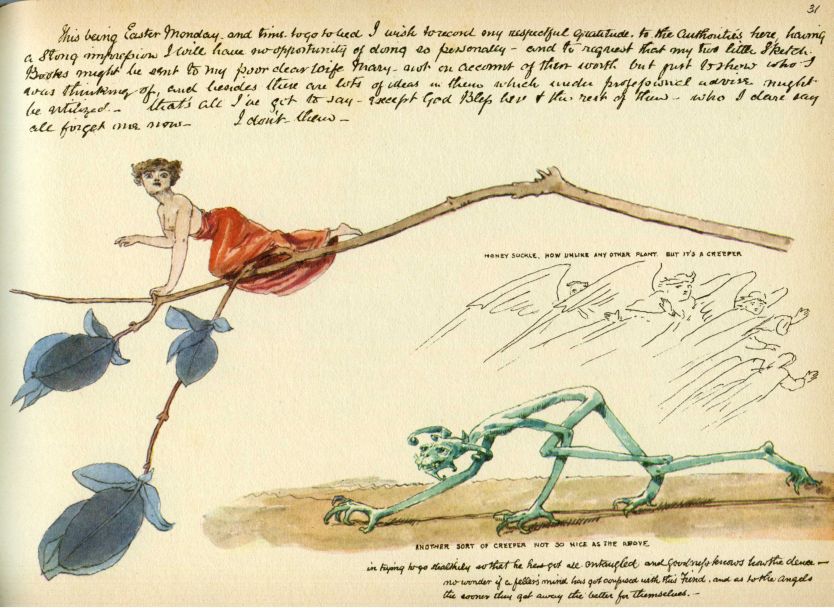 31
This being Easter Monday and time to go to bed I wish to record my respectful gratitude to the Authorities here, having
a strong impression I will have no opportunity of doing so personally - and to request that my two little Sketch
Books might be sent to my poor dear wife Mary - not on account of their worth but just to show who I
was thinking of, and besides there are lots of ideas in them which under professional advise might
be utilized - that's all I've got to say - except God Bless her & the rest of them - who I dare say
all forget me now - I don't them -
HONEY SUCKLE. HOW UNLIKE ANY OTHER PLANT. BUT IT'S A CREEPER
ANOTHER SORT OF CREEPER NOT SO NICE AS THE ABOVE
in trying to go stealthily so that he has got all entangled and Goodness knows how the deuce -
no wonder if a feller's mind has got confused with this Fiend, and as to the Angels
the sooner they get away the better for themselves. -